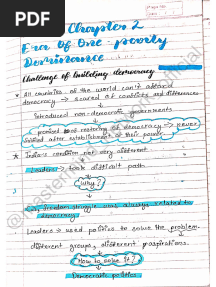 PDF
Page No.
Chapter 2
Era Of One-party
Dominance
Challenge of building democracy
* All countries of the world can't afford
democracy → scared of conflicts and differences
Introduced non democratic governments
promised of restoring of democracy → never
after establishment of their power
* India's condition not very different
Leaders → took difficult path
Why?
freedom struggle was always related to
democracy
Leaders → used politics to solve the problem.
different groups, different aspirations.
How to solve it?
Democratic politics